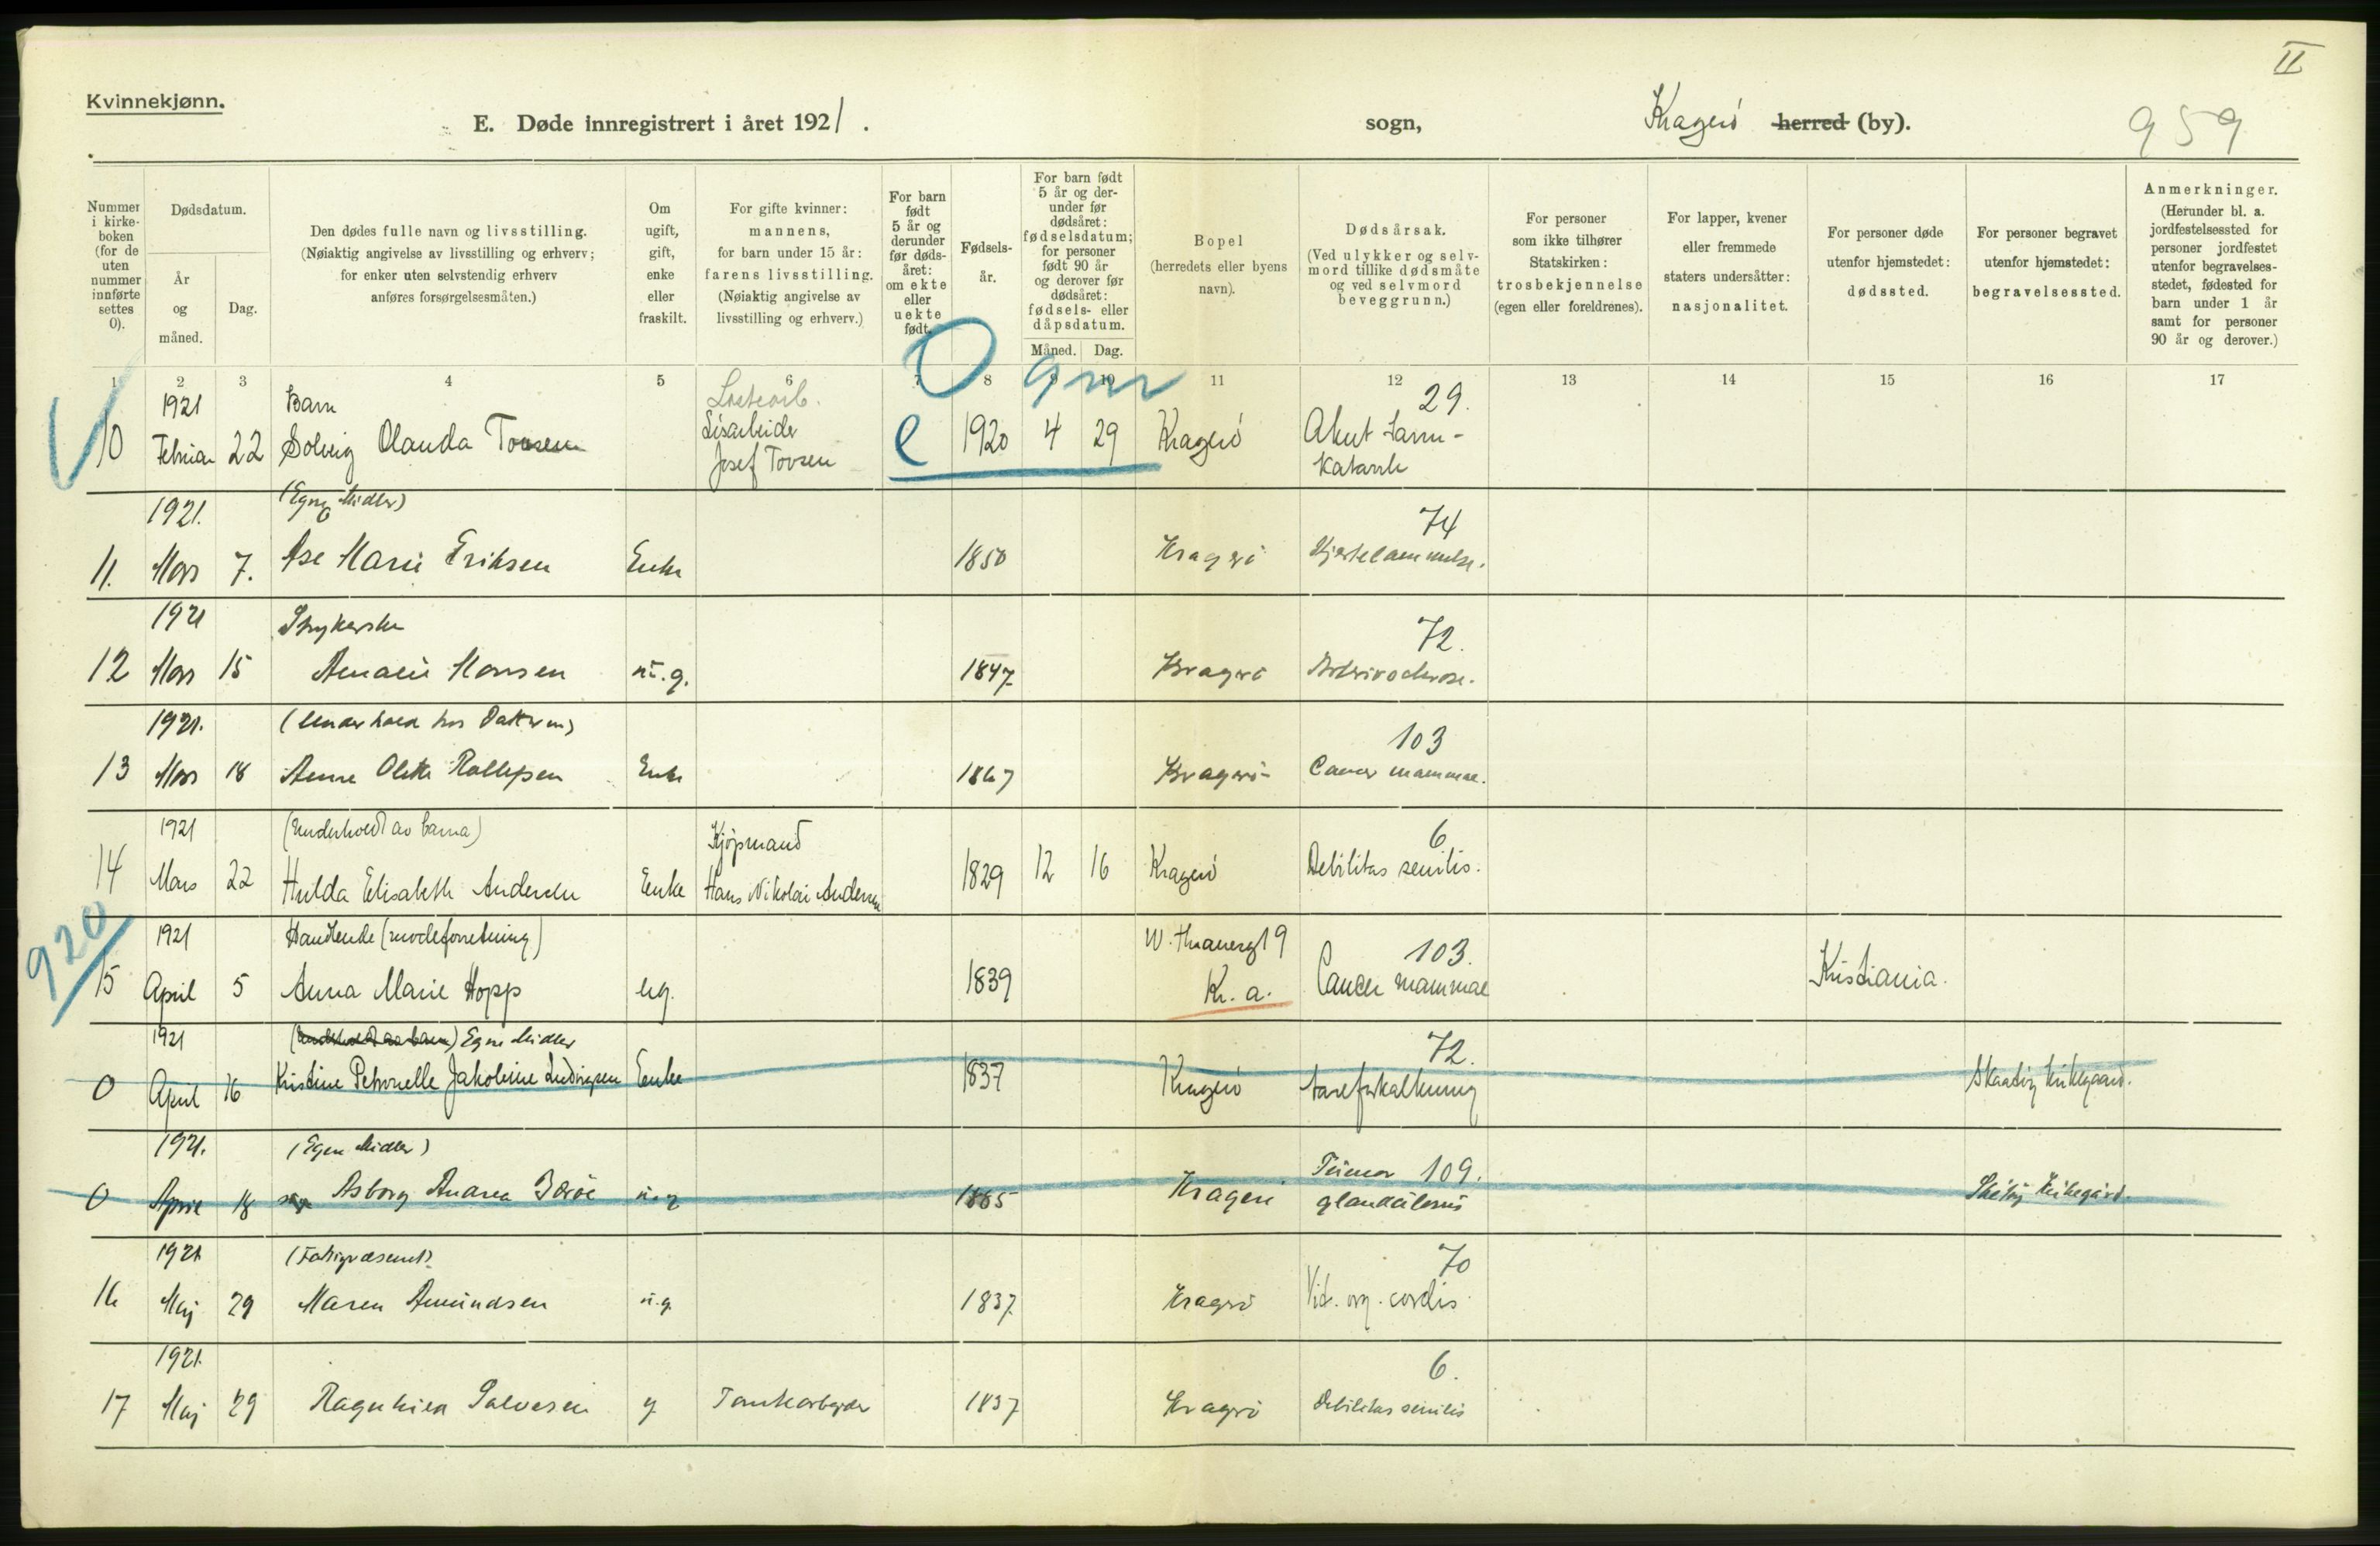 II
Kvinnekjønn.
E. Døde innregistrert i året 1921.
sogn,
Kragerö herred (by).
959
Nummer i kirkeboken (for de uten nummer innførte settes 0).
Dødsdatum.
År og måned.
Dag.
Den dødes fulle navn og livsstilling.
(Nøiaktig angivelse av livsstilling og erhverv;
for enker uten selvstendig erhverv
anføres forsørgelsesmåten.)
Om ugift, gift, enke eller fraskilt.
For gifte kvinner:
mannens,
for barn under 15 år:
farens livsstilling.
(Nøiaktig angivelse av
livsstilling og erhverv.)
For barn født 5 år og derunder før dødsåret: om ekte eller uekte født.
Fødselsår.
For barn født 5 år og derunder før dødsåret: fødselsdatum; for personer født 90 år og derover før dødsåret: fødsels- eller dåpsdatum.
Måned. Dag.
Bopel
(herredets eller byens
navn).
Dødsårsak.
(Ved ulykker og selvmord tillike dødsmåte og ved selvmord beveggrunn.)
For personer
som ikke tilhører
Statskirken:
trosbekjennelse
(egen eller foreldrenes).
For lapper, kvener
eller fremmede
staters undersåtter:
nasjonalitet.
For personer døde
utenfor hjemstedet:
dødssted.
For personer begravet
utenfor hjemstedet:
begravelsessted.
Anmerkninger.
(Herunder bl. a.
jordfestelsessted for
personer jordfestet
utenfor begravelsesstedet, fødested for
barn under 1 år
samt for personer
90 år og derover.)
1 2 3 4 5 6 7 8 9 10 11 12 13 14 15 16 17
0 9 m
1921 Barn 29.
10 Februar 22 Solveig Olanda Tovsen Josef Tovsen e 1920 4 29 Kragerö Akut Tarm-
Katarrh
1921. (Egne Midler) 74
11. Mars 7. Åse Marie Eriksen Enke 1850 Kragerö Hjertelammelse.
1921 Strykerske 72.
12 Mars 15 Amalie Monsen u.g. 1847 Kragerö
1921. 103
13 Mars 18 Anne Olette Enke 1867 Kragerö Cancer mammae.
1921 (Underholdt av barna) Kjøpmand 6
14 Mars 22 Hulda Elisabeth Andersen Enke Hans Nikolai Andersen 1829 12 16 Kragerö Debilitas senilis.
920
1921 Handlende (modeforretning) 9 103.
15 April 5 Anna Marie Hopp ug. 1839 Kr. a. Cancer mammae Kristiania.
1921 (Underholdt av barn) Egne Midler 72.
0 April 16 Kristine Petronelle Jakobine Ludvigsen Enke 1837 Kragerö Aareforkalkning Skaatöy Kirkegaard.
1921. (Egne Midler) Tumor 109.
0 April 18 Asborg Andrea u.g 1885 Kragerö glandulosus Kirkegård.
1921 70
16 Maj 29 Maren Amundsen u.g. 1837 Kragerö Vit. org. cordis
1921. 6.
17 Maj 29 Ragnhild Salvesen g Tomtearbejder 1837 Kragerö Debilitas senilis